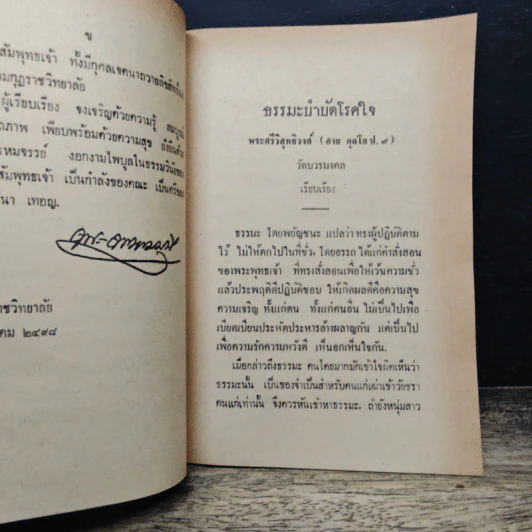 ข
สัมพุทธเจ้า ทั้งมีกุศลเจตนาถวายลิขสิทธิ์แก่
มกุฏราชวิทยาลัย
ผู้เรียบเรียง จงเจริญด้วยความรู้ สมบูรณ์
ภาพ เพียบพร้อมด้วยความสุข ยั่งยืนด้วย
รหมจรรย์ งอกงามไพบูลในธรรมวินัยของ
สัมพุทธเจ้า เป็นกำลังของคณะ เป็นศรีของ
นา เทอญ.
าชวิทยาลัย
คม ๒๔๙๘
ธรรมะบำบัดโรคใจ
พระศรีวิสุทธิวงศ์ ( สาย ตุลโย ป. ๙ )
วัดบวรมงคล
เรียบเรียง
ธรรมะ โดยพยัญชนะ แปลว่า ทรงผู้ปฏิบัติตาม
ไว้ ไม่ให้ตกไปในที่ชั่ว, โดยอรรถ ได้แก่คำสั่งสอน
ของพระพุทธเจ้า ที่ทรงสั่งสอนเพื่อให้เว้นความชั่ว
แล้วประพฤติดีปฏิบัติชอบ ให้เกิดผลดีคือความสุข
ความเจริญ ทั้งแก่ตน ทั้งแก่คนอื่น ไม่เป็นไปเพื่อ
เบียดเบียนประหัตประหารล้างผลาญกัน แต่เป็นไป
เพื่อความรักความหวังดี เห็นอกเห็นใจกัน.
เมื่อกล่าวถึงธรรมะ คนโดยมากมักเข้าใจผิดเห็นว่า
ธรรมะนั้น เป็นของจำเป็นสำหรับคนแก่เฒ่าเข้าวัยชรา
คนแก่เท่านั้น จึงควรหันเข้าหาธรรมะ. ถ้ายังหนุ่มสาว